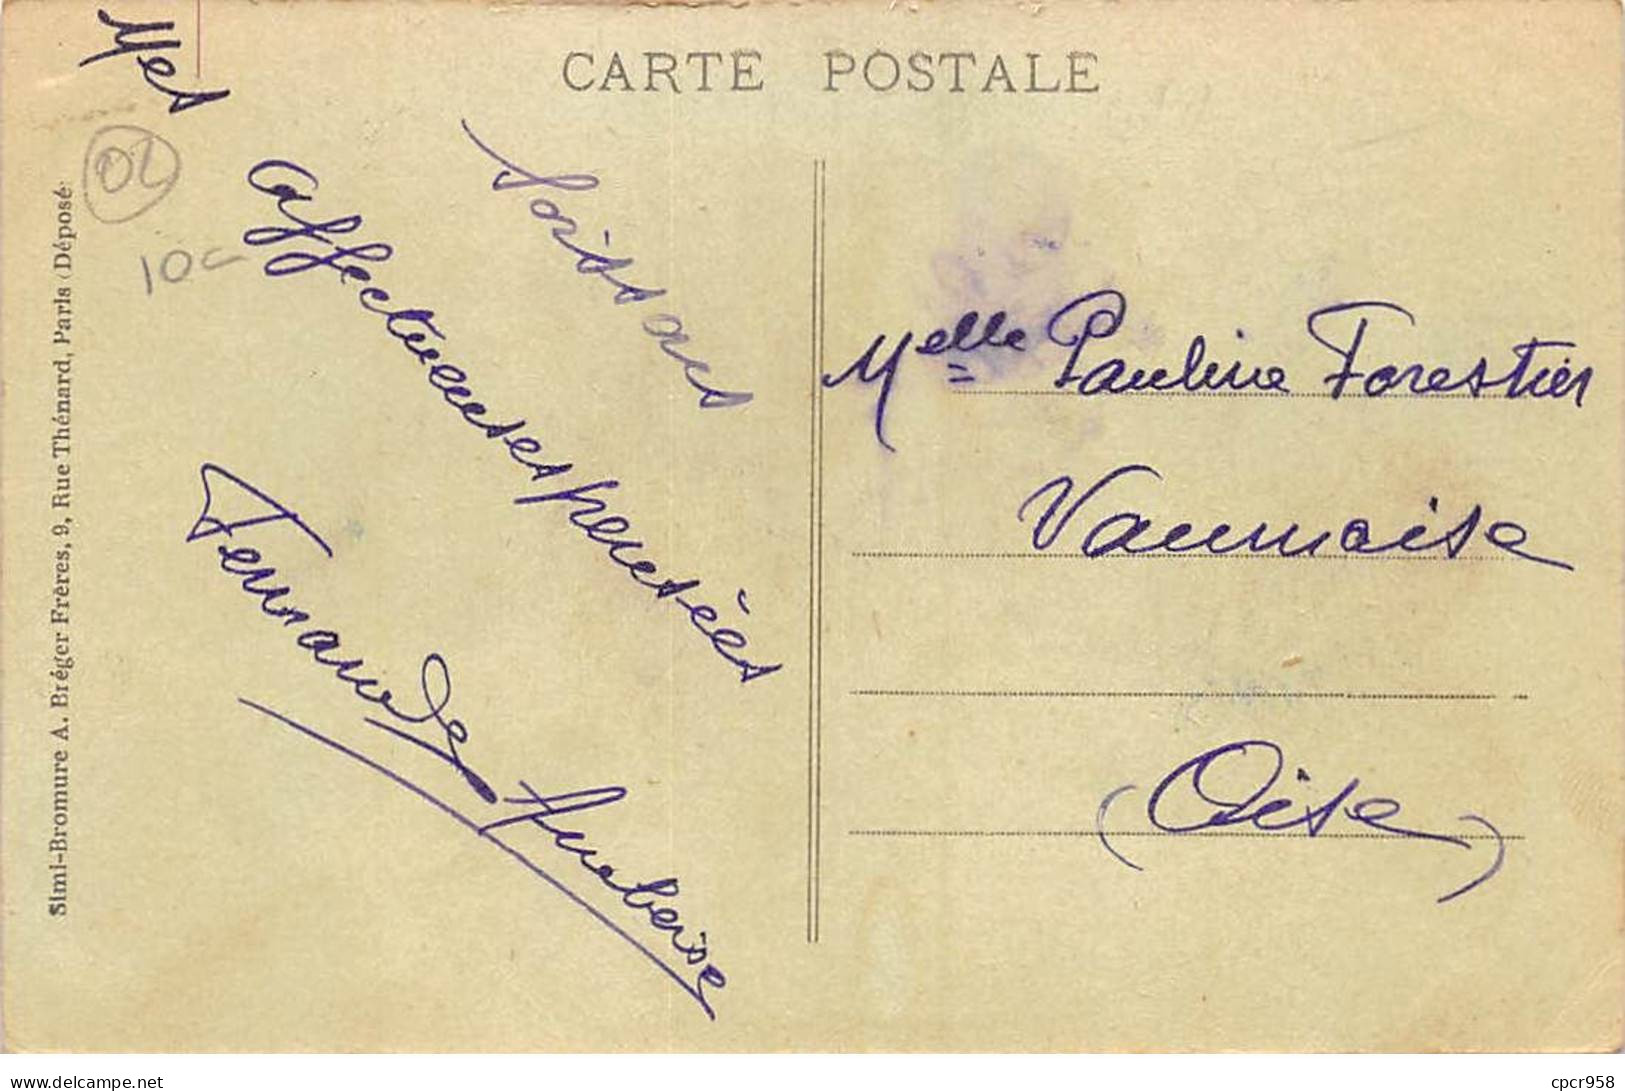 CARTE POSTALE
Mes
Soissons
affectueuses pensées
Fernande
Simi-Bromure A. Bréger Frères, 9, Rue Thénard, Paris (Déposé)
02
10c
Melle Pauline Forestier
Vaumoise
(Oise)
www.delcampe.net
cpcr958